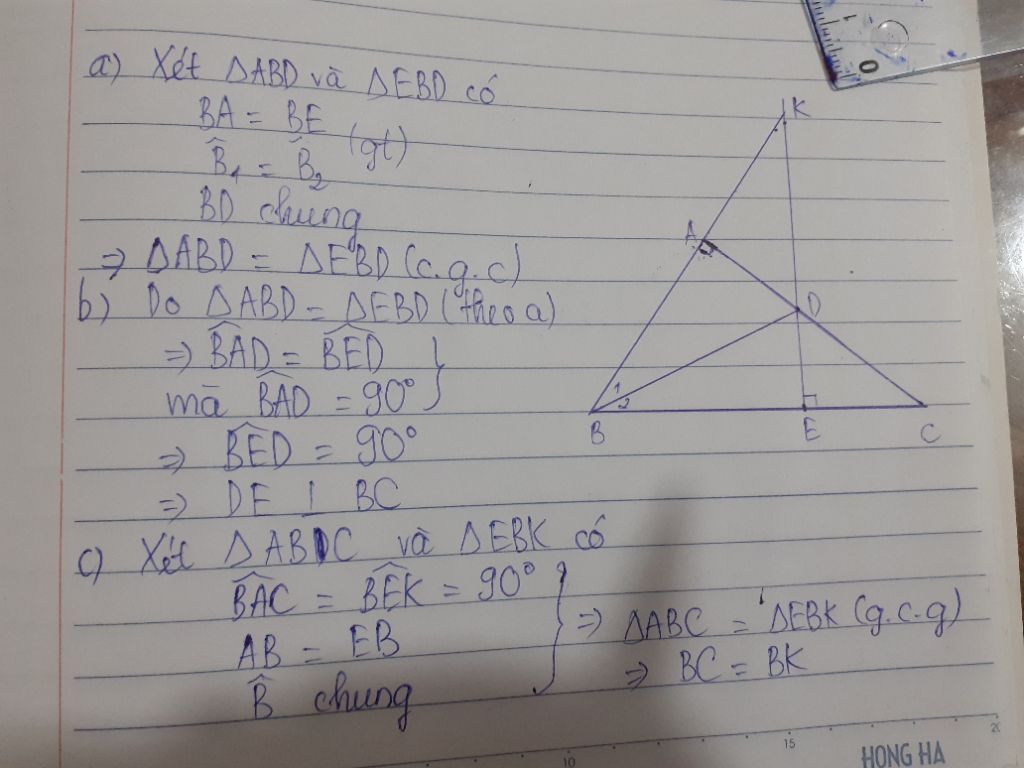 a) Xét ΔABD và ΔEBD có
BA = BE (gt)
B̂₁ = B̂₂
BD chung
⇒ ΔABD = ΔEBD (c.g.c)
b) Do ΔABD = ΔEBD (theo a)
⇒ B̂AD = B̂ED
mà B̂AD = 90°
⇒ B̂ED = 90°
⇒ DE ⊥ BC
c) Xét ΔABC và ΔEBK có
B̂AC = B̂EK = 90°
AB = EB
B̂ chung
⇒ ΔABC = ΔEBK (g.c.g)
⇒ BC = BK
K
A
D
1
2
B
E
C
1
0
10
15
20
HONG HA